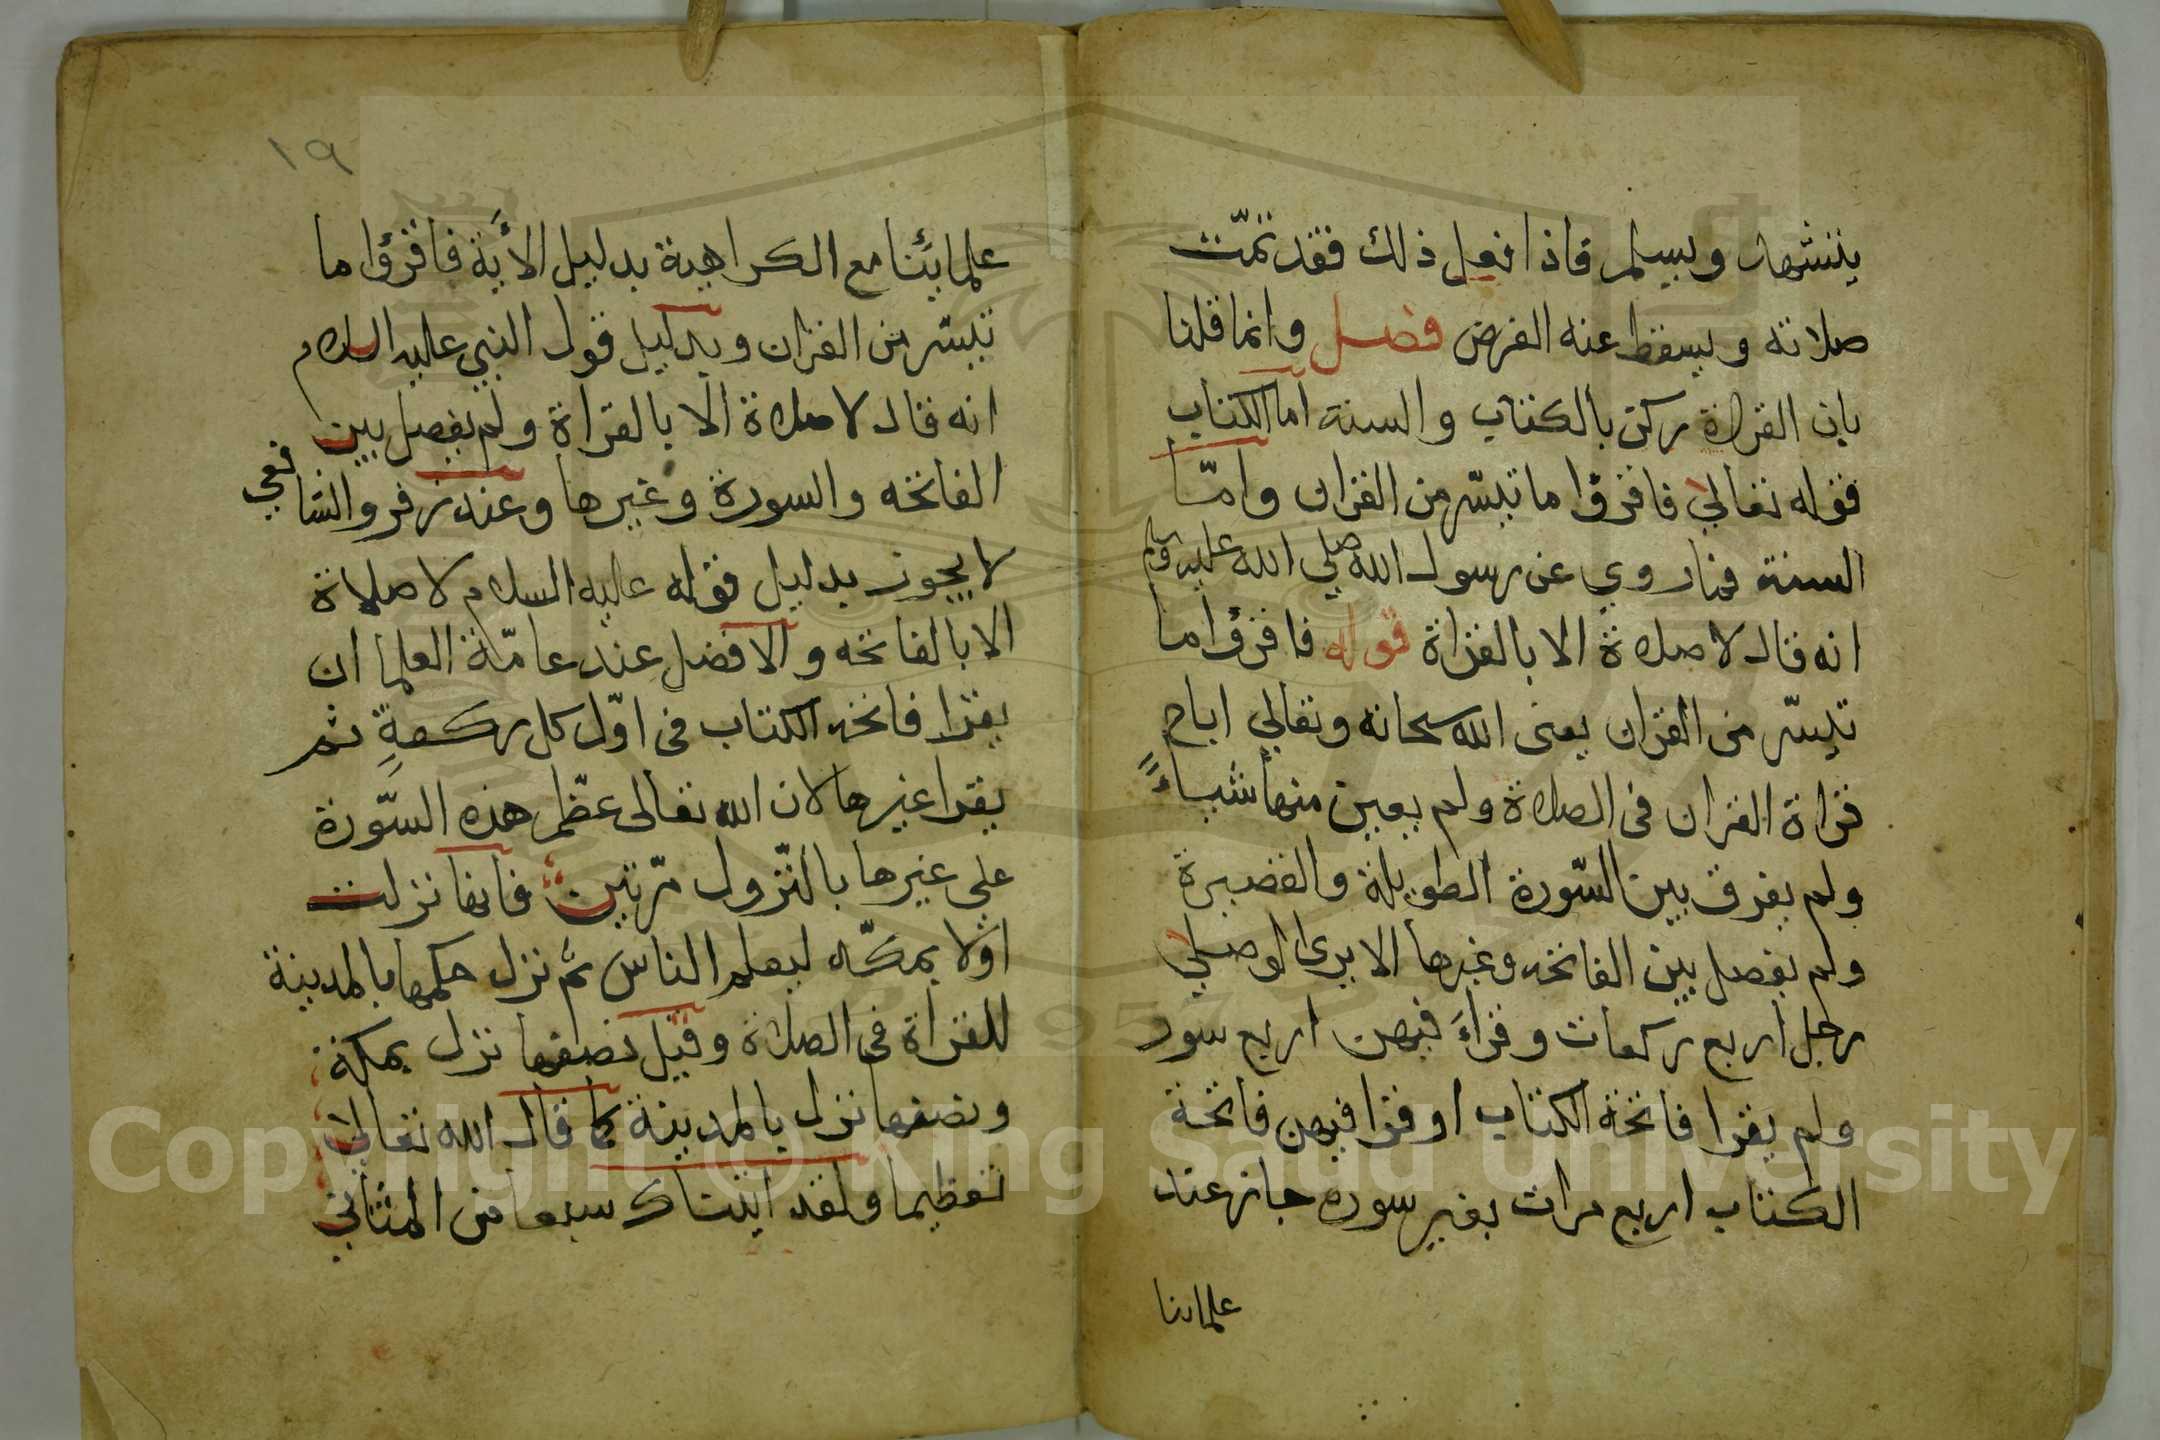 يتشهد ويسلم فاذا فعل ذلك فقد تمّت
صلاته ويسقط عنه الفرض فصل وانما قلنا
بان القراة ركن بالكتاب والسنة اما الكتاب
فقوله تعالي فاقرؤا ما تيسّر من القران وامّا
السنة فما روي عن رسول الله صلي الله عليه وسلم
انه قال لا صلاة الا بالقراة قوله فاقرؤا ما
تيسّر من القران يعنى الله سبحانه وتعالي اباح
قراة القران فى الصلاة ولم يعين منها شيىاءً
ولم يفرق بين السّورة الطويلة والقصيرة
ولم يفصل بين الفاتحه وغيرها الا يرى لو صلي
رجل اربع ركعات وقراءَ فيهن اربع سور
ولم يقرا فاتحة الكتاب او قرا فيهن فاتحة
الكتاب اربع مرات بغير سوره جاز عند
علماىنا
١٩
علمائنا مع الكراهية بدليل الأية فاقرؤا ما
تيسّر من القران وبدليل قول النبي عليه السلام
انه قال لا صلاة الا بالقراة ولم يفصل بين
الفاتحه والسورة وغيرها وعند زفر والشافعي
لا يجوز بدليل قوله عليه السلام لا صلاة
الا بالفاتحه والافضل عند عامّة العلما ان
يقرا فاتحه الكتاب فى اوّل كل ركعةٍ ثم
يقرا غيرها لان الله تعالى عظّم هذه السّورة
على غيرها بالنّزول مرّتين فانها نزلت
اوّلا بمكّه ليعلم الناس ثم نزل حكمها بالمدينة
للقراة فى الصلاة وقيل نصفها نزل بمكة
ونصفها نزل بالمدينة كما قال الله تعالي
تعظيما ولقد اتيناك سبعا من المثاني
Copyright © King Saud University
1957